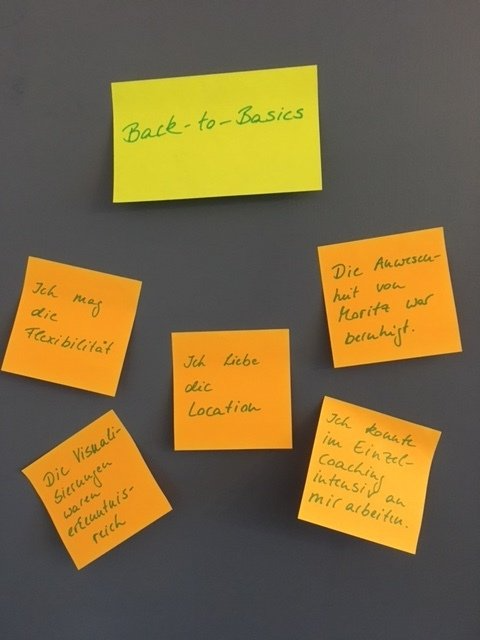 Back-to-Basics
Ich mag
die
Flexibilität
Die Anwesen-
heit von
Moritz war
beruhigt.
Ich liebe
die
Location
Die Visuali-
sierungen
waren
erkenntnis-
reich
Ich konnte
im Einzel-
Coaching
intensiv an
mir arbeiten.